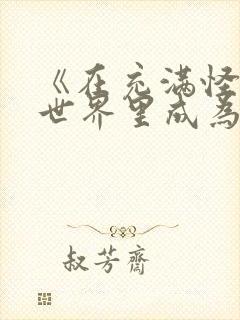 《在充满怪
世界里成为
叔芳齋